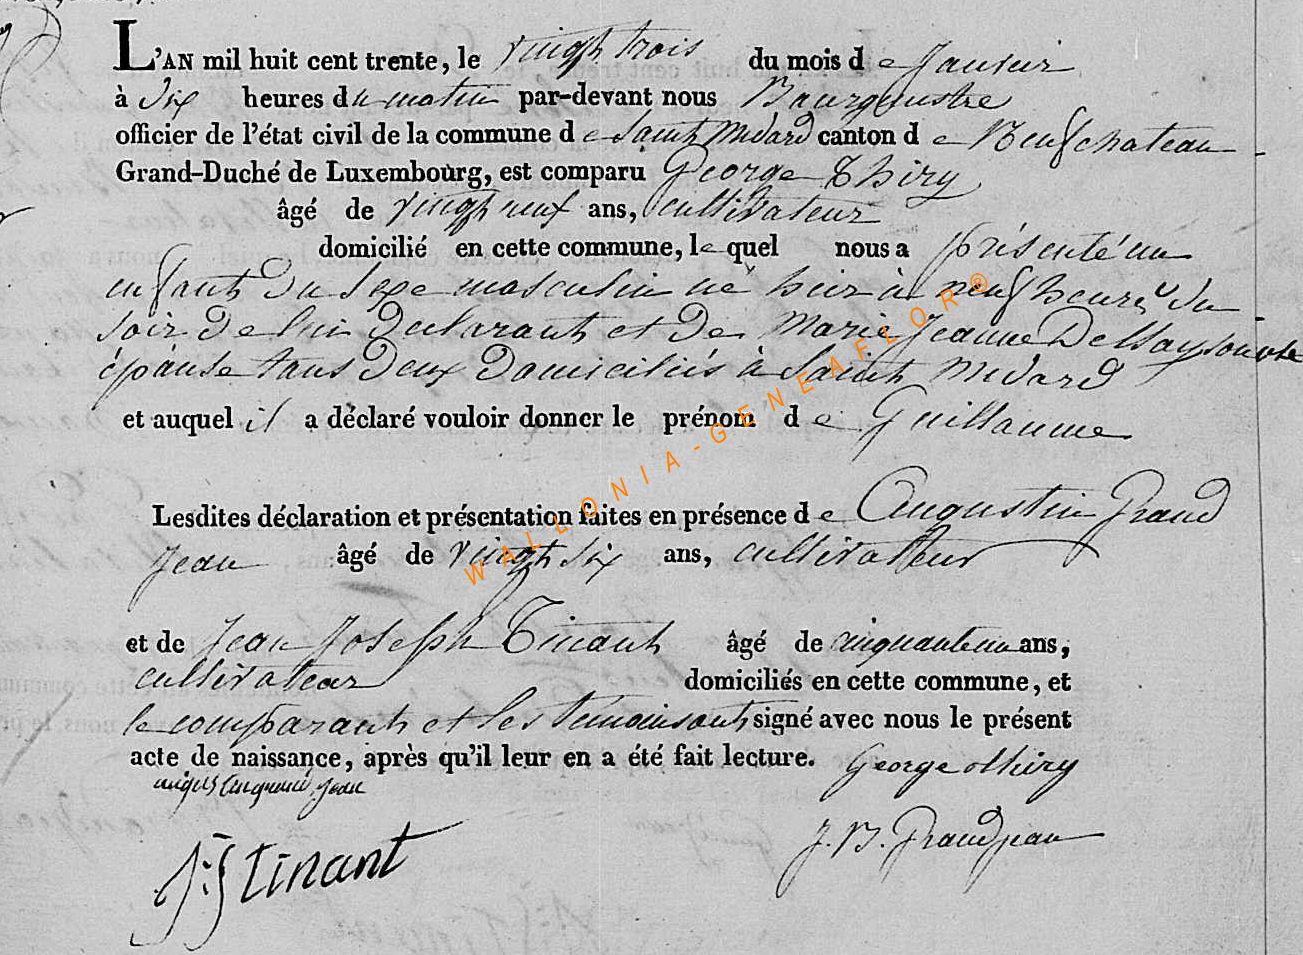 L'AN mil huit cent trente, le vingt trois du mois de Janvier
à Six heures du matin par-devant nous Bourgmestre
officier de l'état civil de la commune de Saint Médard canton de Neufchateau
Grand-Duché de Luxembourg, est comparu George Thiry
âgé de vingt neuf ans, cultivateur
domicilié en cette commune, lequel nous a présenté un
enfant du Sexe masculin né hier à neuf heures du
soir de lui declarant et de Marie Jeanne Dellay son
épouse tous deux domiciliés à Saint Médard
et auquel il a déclaré vouloir donner le prénom de Guillaume
Lesdites déclaration et présentation faites en présence de Augustin Grand
Jean âgé de vingt Six ans, cultivateur
et de Jean Joseph Tinant âgé de cinquante un ans,
cultivateur domiciliés en cette commune, et
le comparant et les temoins ont signé avec nous le présent
acte de naissance, après qu'il leur en a été fait lecture. George thiry
Jean
J. B. Grandjean
J: J tinant
WALLONIA-GENEAFLOR®